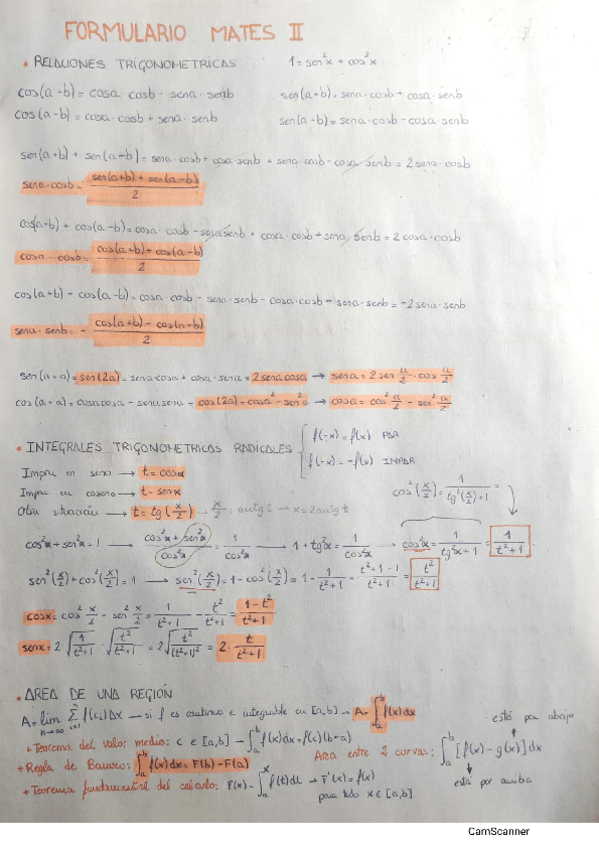 FORMULARIO MATES II
• RELACIONES TRIGONOMETRICAS 1 = sen²x + cos²x
cos(a+b) = cosa · cosb - sena · senb sen(a+b) = sena · cosb + cosa · senb
cos(a-b) = cosa · cosb + sena · senb sen(a-b) = sena · cosb - cosa · senb
sen(a+b) + sen(a-b) = sena · cosb + cosa · senb + sena · cosb - cosa · senb = 2 sena · cosb
sena · cosb = (sen(a+b) + sen(a-b)) / 2
cos(a+b) + cos(a-b) = cosa · cosb - sena · senb + cosa · cosb + sena · senb = 2 cosa · cosb
cosa · cosb = (cos(a+b) + cos(a-b)) / 2
cos(a+b) - cos(a-b) = cosa · cosb - sena · senb - cosa · cosb - sena · senb = -2 sena · senb
sena · senb = - (cos(a+b) - cos(a-b)) / 2
sen(a+a) = sen(2a) = sena cosa + cosa · sena = 2 sena cosa → sena = 2 sen a/2 · cos a/2
cos(a+a) = cosa cosa - sena sena = cos(2a) = cosa² - sen²a → cosa = cos² a/2 - sen² a/2
• INTEGRALES TRIGONOMETRICAS RADICALES { f(-x) = f(x) PAR
f(-x) = -f(x) IMPAR
Impar en seno → t = cosx
Impar en coseno → t = senx cos²(x/2) = 1 / (tg²(x/2)+1) =
Otra situación → t = tg(x/2) → x/2 = arctg t → x = 2arctg t
cos²x + sen²x = 1 → (cos²x + sen²x) / cos²x = 1 / cos²x → 1 + tg²x = 1 / cos²x → cos²x = 1 / (tg²x+1) = 1 / (t²+1)
sen²(x/2) + cos²(x/2) = 1 → sen²(x/2) = 1 - cos²(x/2) = 1 - 1/(t²+1) = (t²+1-1)/(t²+1) = t²/(t²+1)
cosx = cos² x/2 - sen² x/2 = 1/(t²+1) - t²/(t²+1) = (1-t²)/(t²+1)
senx = 2 √(1/(t²+1)) · √(t²/(t²+1)) = 2√(t²/(t²+1)²) = 2 · t/(t²+1)
• AREA DE UNA REGIÓN
A = lim n→∞ Σ i=1 n f(ci) Δx → si f es continua e integrable en [a,b] → A = ∫ₐᵇ f(x)dx
está por abajo
+ Teorema del valor medio: c ∈ [a,b] → ∫ₐᵇ f(x)dx = f(c)(b-a)
Area entre 2 curvas: ∫ₐᵇ [f(x) - g(x)] dx
+ Regla de Barrow: ∫ₐᵇ f(x)dx = F(b) - F(a)
está por arriba
+ Teorema fundamental del calculo: F(x) = ∫ₐˣ f(t)dt → F'(x) = f(x)
para todo x ∈ [a,b]
CamScanner